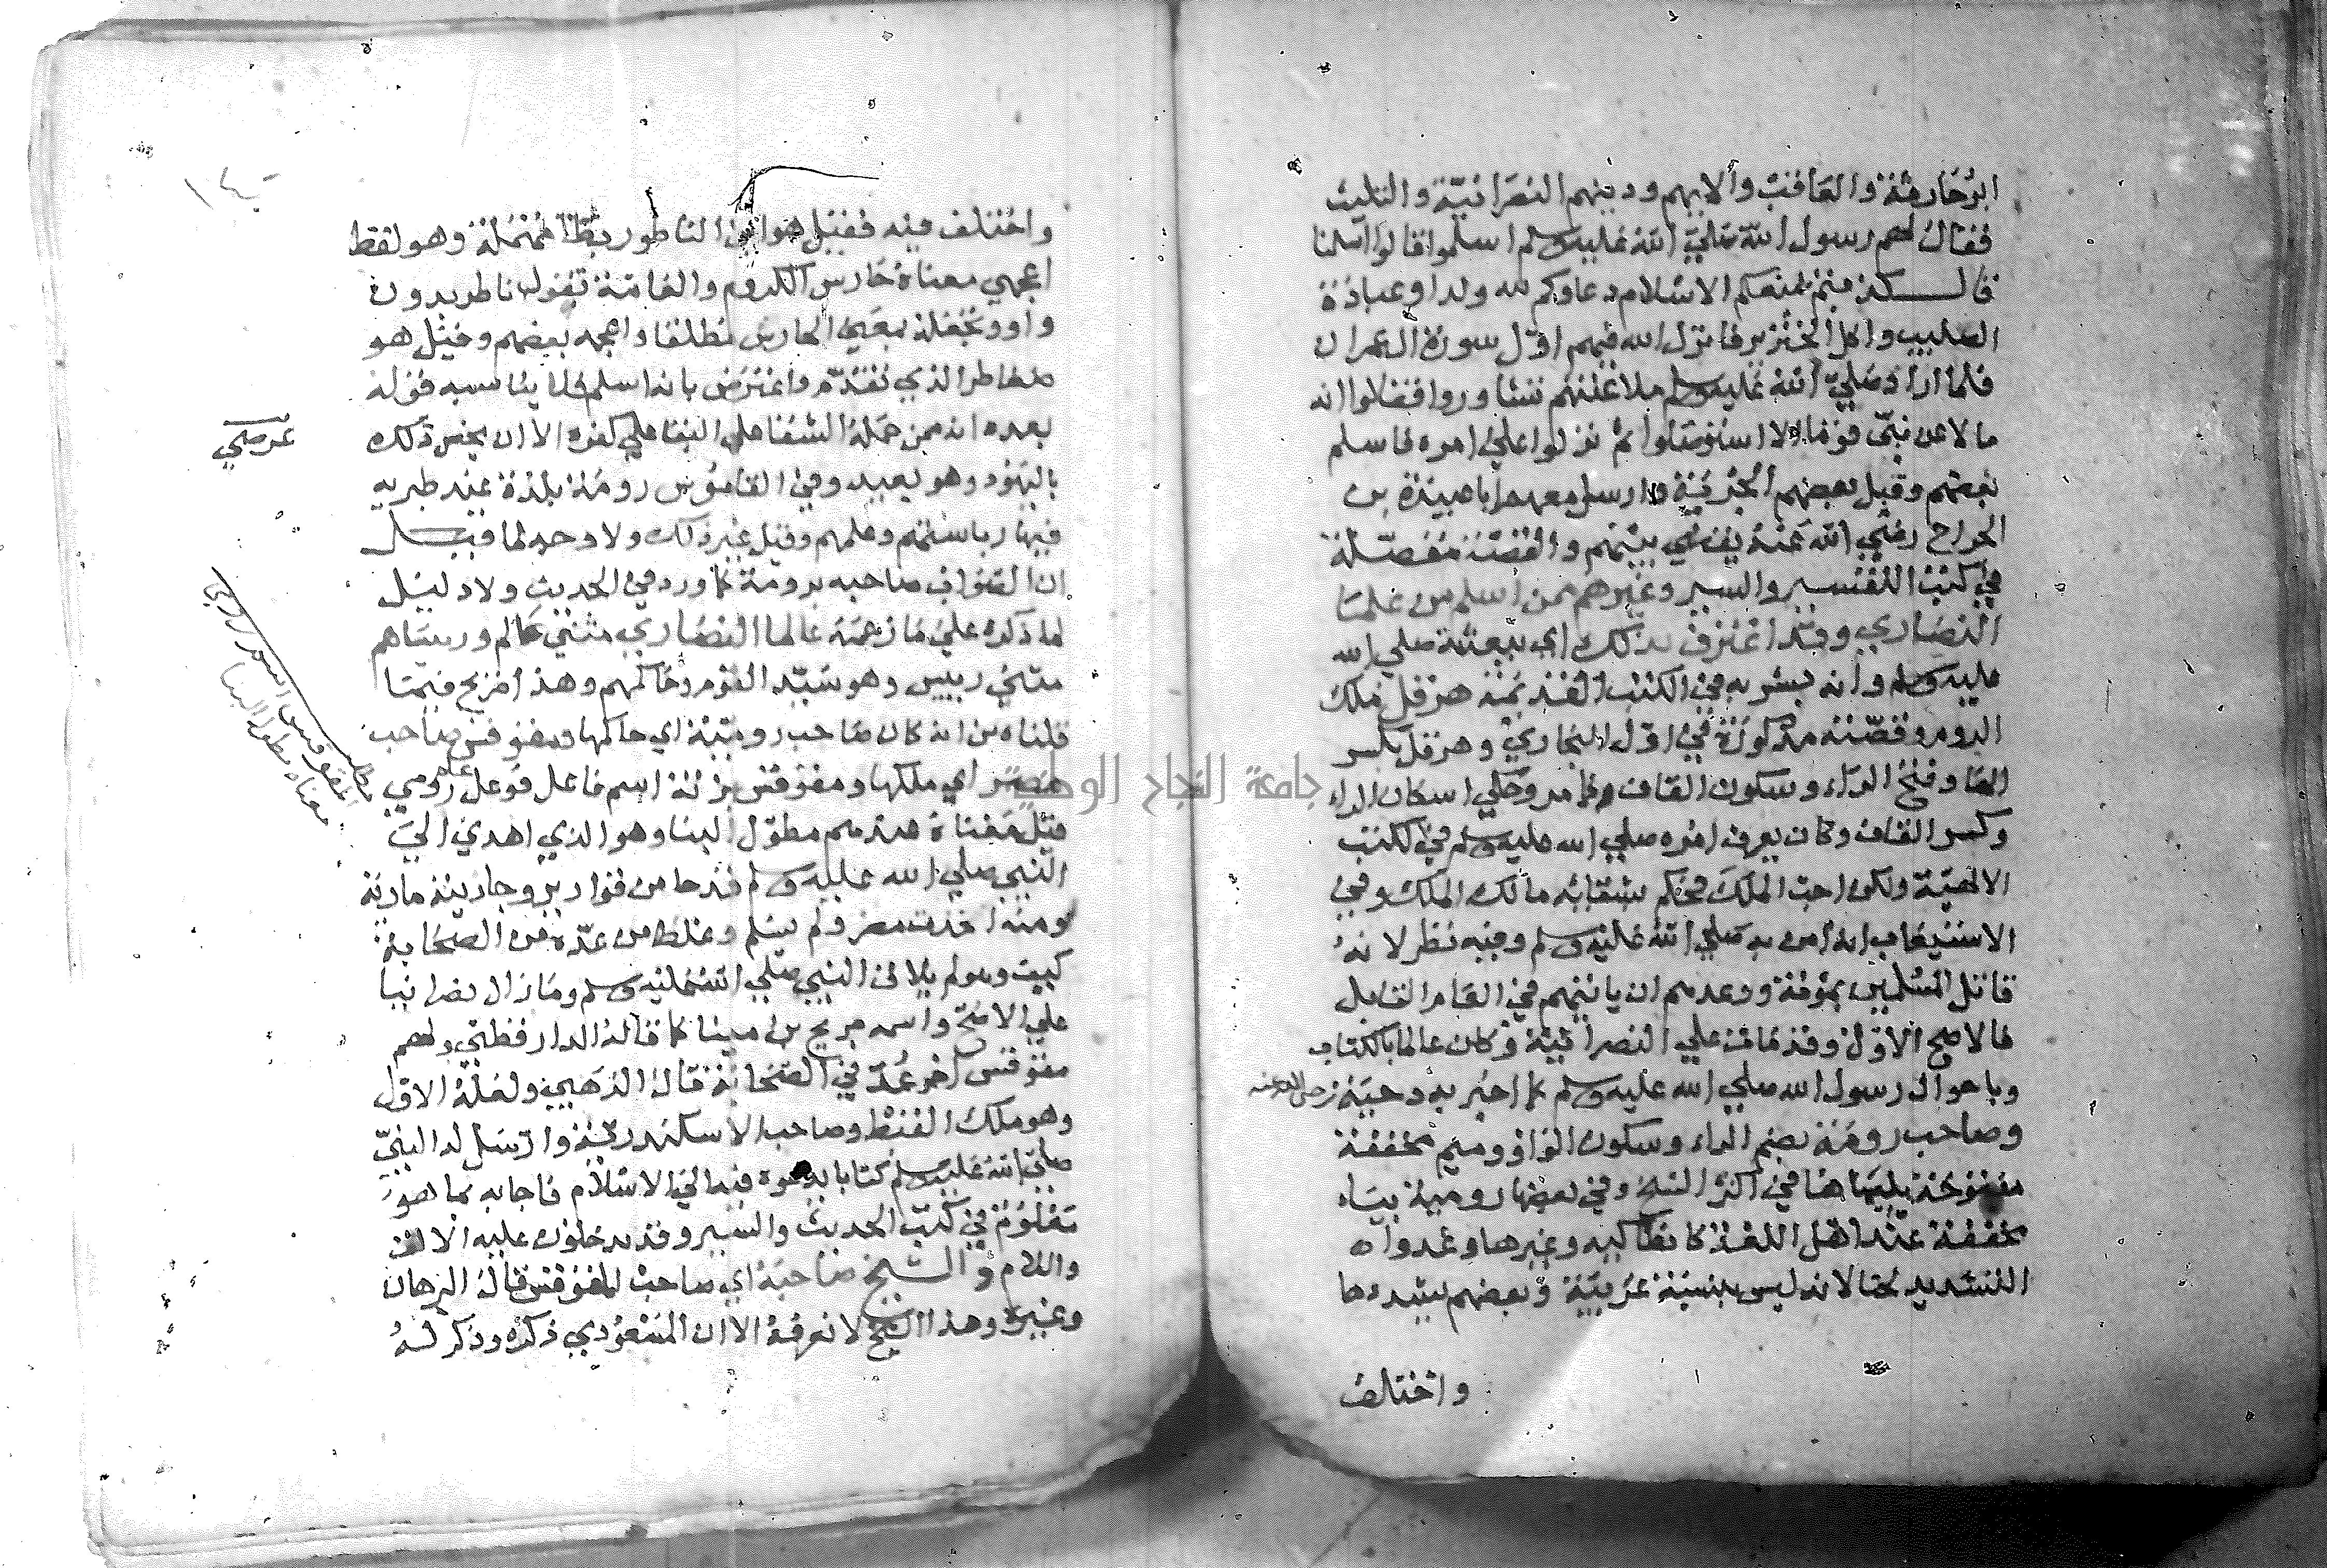 ابو حارثة والعاقب والايهم ودينهم النصرانية والتثليث
فقال لهم رسول الله صلى الله عليه وسلم اسلموا قالوا اسلمنا
قال كذبتم يمنعكم الاسلام دعاوكم لله ولدا وعبادة
الصليب واكل الخنزير فانزل الله فيهم اول سورة ال عمران
فلما اراد صلى الله عليه وسلم ملاعنتهم تشاوروا فقالوا انه
ما لاعن نبي قوما الا استوصلوا ثم نزلوا علي امره فاسلم
بعضهم وقبل بعضهم الجزية وارسل معهم ابا عبيدة بن
الجراح رضي الله عنه يقضي بينهم والقصة مفصلة
في كتب التفسير والسير وغيرهم ممن اسلم من علما
النصاري وقد اعترف بذلك اي ببعثته صلي الله
عليه وسلم وانه بشر به في الكتب القديمة هرقل ملك
الروم وقصته مذكورة في اول البخاري وهرقل بكسر
الها وفتح الراء وسكون القاف كما مر وحكي اسكان الراء
وكسر القاف وكان يعرف امره صلي الله عليه وسلم في الكتب
الالهية ولكن احب الملك فحكم بشقائه مالك الملك وفي
الاستيعاب انه امن به صلي الله عليه وسلم وفيه نظر لانه
قاتل المسلمين بموتة ووعدهم ان ياتيهم في العام القابل
فالاصح الاول وقد مات علي النصرانية وكان عالما بالكتاب
وباحوال رسول الله صلي الله عليه وسلم كما اخبر به دحية رضي الله عنه
وصاحب رومة بضم الراء وسكون الواو وميم مخففة
مفتوحة يليها هنا في اكثر النسخ وفي بعضها رومية بياء
مخففة عند اهل اللغة كانطاكية وغيرها وعدوا
التشديد لحنا لانه ليس بنسبة عربية وبعضهم يشددها
واختلف
واختلف فيه فقيل هو ابن الناطور بطا مهملة وهو لفظ
اعجمي معناه حارس الكروم والعامة تقول ناطر بدون
واو وتجعله بمعني الحارس مطلقا واعجمه بعضهم وقيل هو
ضغاطر الذي تقدم واعترض بانه اسلم فلا يناسبه قوله
بعده انه ممن حمله الشقا علي البقا علي كفره الا ان يخص ذلك
باليهود وهو بعيد وفي القاموس رومة بلدة عند طبرية
فيها رياستهم وعلمهم وقيل غير ذلك ولا وجه لما قيل
ان الصواب صاحبه برومة كما ورد في الحديث ولا دليل
لما ذكره علي ما زعمه عالما النصاري مثني عالم ورييساهم
مثني رييس وهو سيد القوم وحاكمهم وهذا صريح فيما
قلناه من انه كان صاحب رومية اي حاكمها ومقوقس صاحب
مصر اي ملكها ومقوقس بزنة اسم فاعل فوعل علم رومي
قيل معناه عندهم مطول البنا وهو الذي اهدي الي
النبي صلي الله عليه وسلم قدحا من قوارير وجاريته مارية
ومنه اخذت مصر ولم يسلم وغلط من عده من الصحابة
كيف وهو لم يلاق النبي صلي الله عليه وسلم وما زال نصرانيا
علي الاصح واسمه جريج بن مينا كما قاله الدارقطني ولهم
مقوقس اخر عد في الصحابة قال الذهبي ولعله الاول
وهو ملك القبط وصاحب الاسكندرية وارسل له النبي
صلي الله عليه وسلم كتابا يدعوه فيه الي الاسلام فاجابه بما هو
معلوم في كتب الحديث والسير وقد يدخلون عليه الالف
واللام والشيخ صاحبه اي صاحب المقوقس قال البرهان
وغيره وهذا الشيخ لا نعرفه الا ان المسعودي ذكره وذكر له
المقوقس
معناه مطول البنا